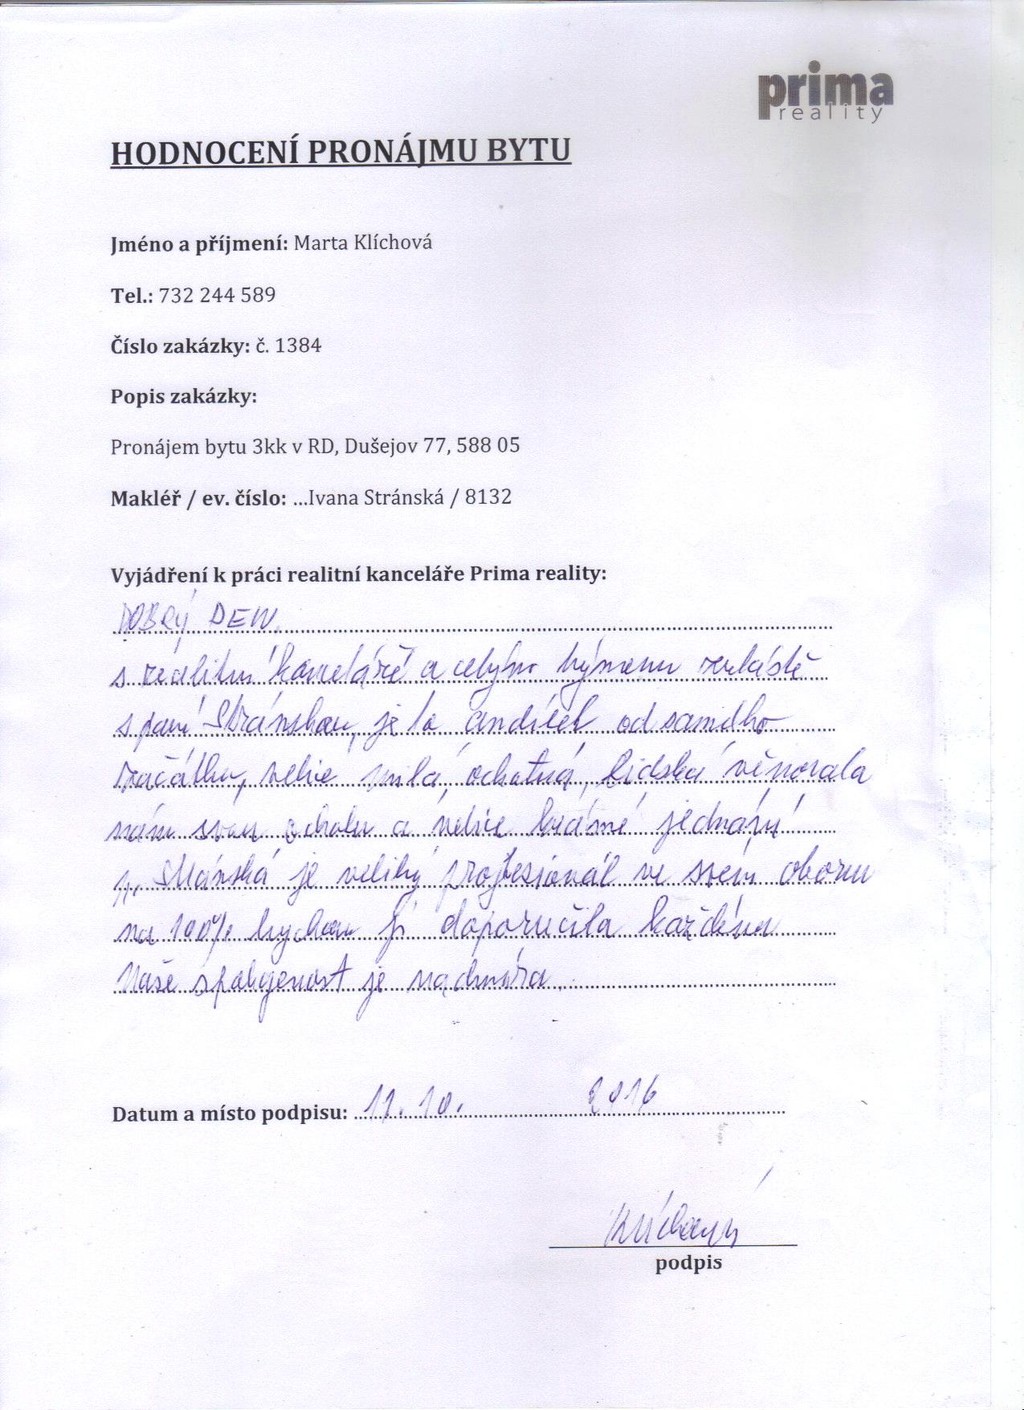 prima
reality
HODNOCENÍ PRONÁJMU BYTU
Jméno a příjmení: Marta Klíchová
Tel.: 732 244 589
Číslo zakázky: č. 1384
Popis zakázky:
Pronájem bytu 3kk v RD, Dušejov 77, 588 05
Makléř / ev. číslo: ...Ivana Stránská / 8132
Vyjádření k práci realitní kanceláře Prima reality:
DOBRÝ DEN
s realitní kanceláře a celýho týmemu zvláště
s paní Stránskou, je to andílek od samího
začátku, velice milá, ochotná, lidská věnovala
nám svou ochotu a velice krásné jednání
p. Stránská je veliký profesionál ve svém oboru
na 100% bychom ji doporučila každému
Naše spokojenost je nadmíra
Datum a místo podpisu: 11. 10. 2016
Klíchová
podpis